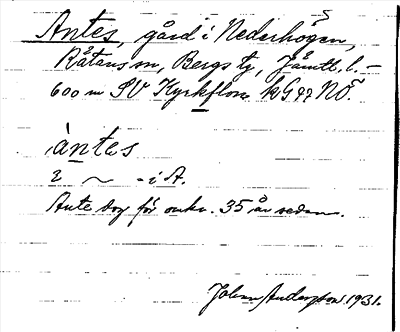 Antes, gård i Nederhögen,
Råtans sn, Bergs tg, Jämtl. l. –
600 m SV Kyrkflon. kG 97 NÖ.
àntes
2 ~ - i A.
Ante dog för omkr. 35 år sedan.
Johan Andersson 1931.